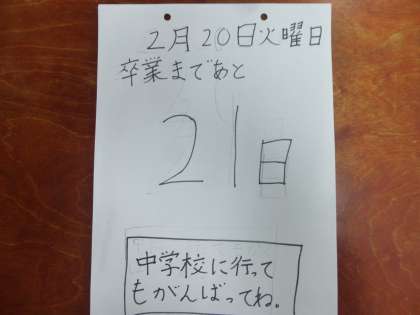 2月20日火曜日
卒業まであと
21日
中学校に行って
もがんばってね。